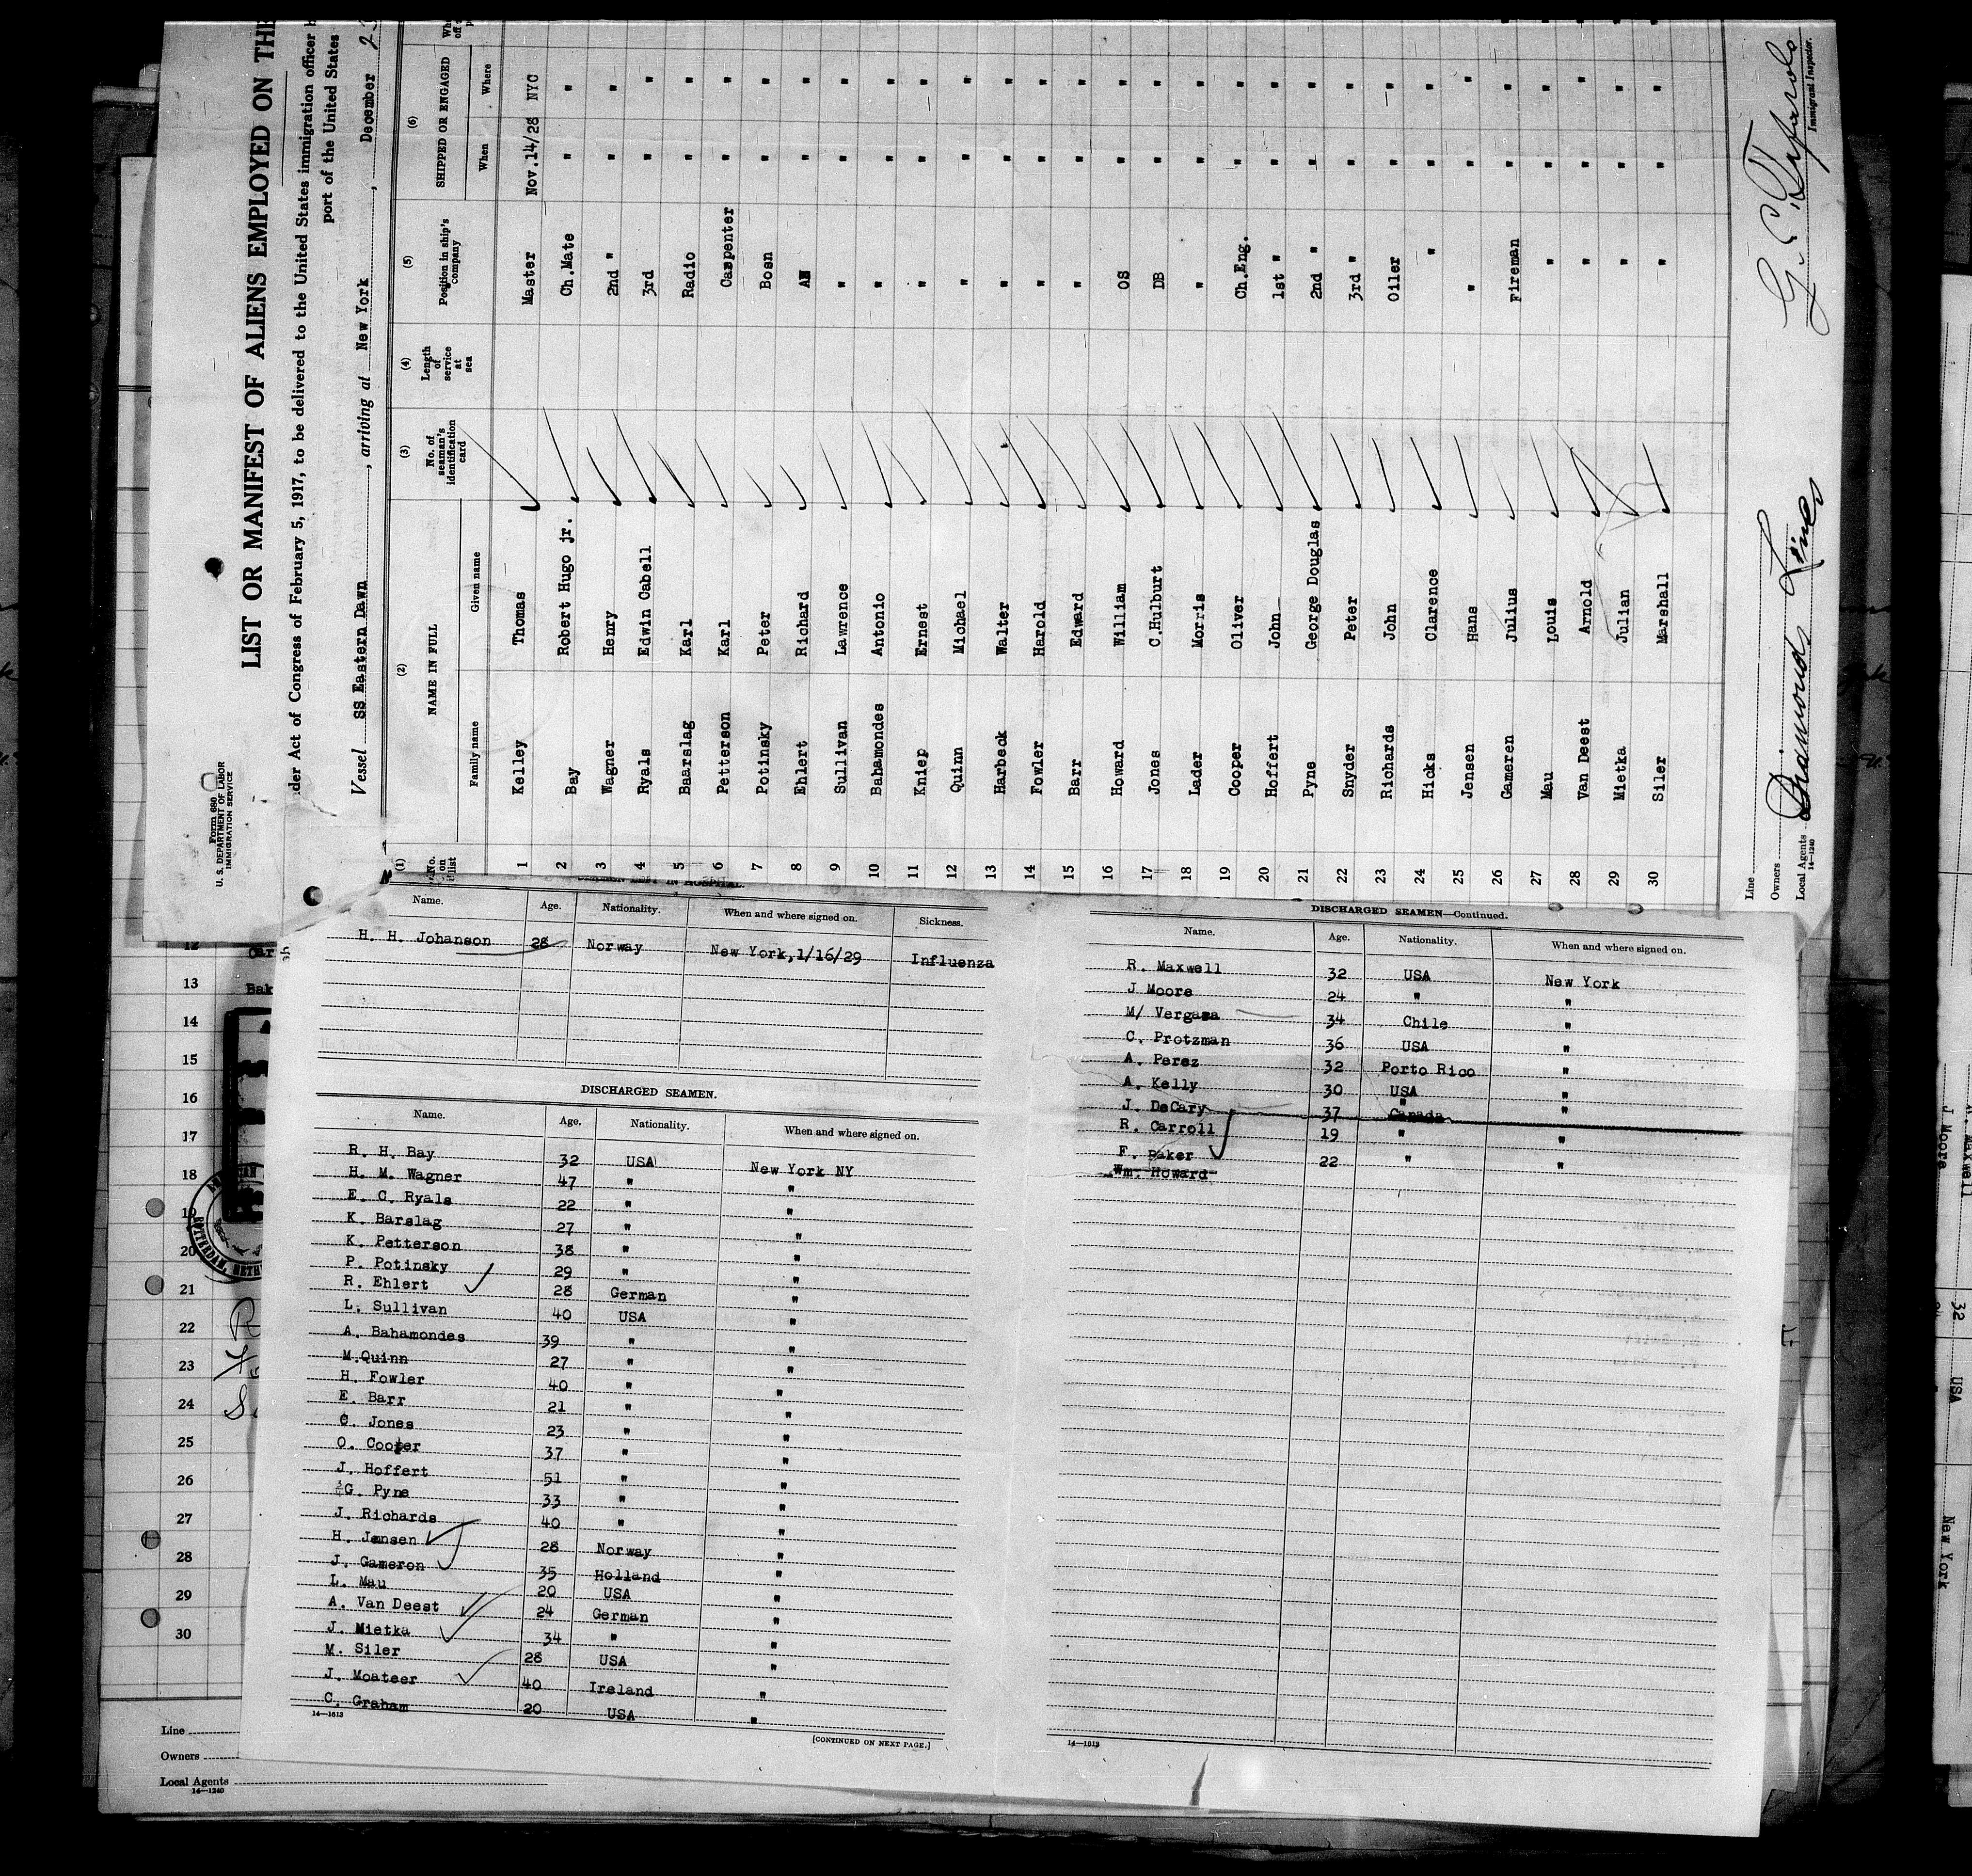 Form 680
U. S. DEPARTMENT OF LABOR
IMMIGRATION SERVICE
LIST OR MANIFEST OF ALIENS EMPLOYED ON THE
der Act of Congress of February 5, 1917, to be delivered to the United States immigration officer
port of the United States
Vessel SS Eastern Dawn, arriving at New York, December 2
(1) (2) (3) (4) (5) (6)
No. on list NAME IN FULL No. of seaman's identification card Length of service at sea Position in ship's company SHIPPED OR ENGAGED
Family name Given name When Where
1 Kelley Thomas Master Nov.14/28 NYC
2 Bay Robert Hugo jr. Ch.Mate " "
3 Wagner Henry 2nd " " "
4 Ryals Edwin Cabell 3rd " " "
5 Baarslag Karl Radio " "
6 Petterson Karl Carpenter " "
7 Potinsky Peter Bosn " "
8 Ehlert Richard AB " "
9 Sullivan Lawrence " " "
10 Bahamondes Antonio " " "
11 Kniep Ernest " " "
12 Quinn Michael " " "
13 Harbeck Walter " " "
14 Fowler Harold " " "
15 Barr Edward " " "
16 Howard William OS " "
17 Jones C.Hulburt DB " "
18 Lader Morris " " "
19 Cooper Oliver Ch.Eng. " "
20 Hoffert John 1st " " "
21 Pyne George Douglas 2nd " " "
22 Snyder Peter 3rd " " "
23 Richards John Oiler " "
24 Hicks Clarence " " "
25 Jensen Hans " " "
26 Gameren Julius Fireman " "
27 Mau Louis " " "
28 Van Deest Arnold " " "
29 Mietka Julian " " "
30 Siler Marshall " " "
Line
Owners
Local Agents Diamond Lines
14—1240
Immigrant Inspector.
SEAMEN LEFT IN HOSPITAL.
Name. Age. Nationality. When and where signed on. Sickness.
H. H. Johanson 28 Norway New York,1/16/29 Influenza
DISCHARGED SEAMEN.
Name. Age. Nationality. When and where signed on.
R. H. Bay 32 USA New York NY
H. M. Wagner 47 " "
E. C. Ryals 22 " "
K. Barslag 27 " "
K. Petterson 38 " "
P. Potinsky 29 " "
R. Ehlert 28 German "
L. Sullivan 40 USA "
A. Bahamondes 39 " "
M.Quinn 27 " "
H. Fowler 40 " "
E. Barr 21 " "
C. Jones 23 " "
O. Cooper 37 " "
J. Hoffert 51 " "
G. Pyne 33 " "
J. Richards 40 " "
H. Jensen 28 Norway "
J. Gameron 35 Holland "
L. Mau 20 USA "
A. Van Deest 24 German "
J. Mietka 34 " "
M. Siler 28 USA "
J. Moateer 40 Ireland "
C. Graham 20 USA "
14—1613
[CONTINUED ON NEXT PAGE.]
DISCHARGED SEAMEN—Continued.
Name. Age. Nationality. When and where signed on.
R. Maxwell 32 USA New York
J Moore 24 " "
M/ Vergara 34 Chile "
C. Protzman 36 USA "
A. Perez 32 Porto Rico "
A. Kelly 30 USA "
J. DeCary 37 Canada "
R. Carroll 19 " "
F. Baker 22 " "
Wm. Howard
14—1613
12 Car
13 Bak
14
15
16
17
18
19
20
21
22
23
24
25
26
27
28
29
30
ROTTERDAM, NETH
Line
Owners
Local Agents
14—1240
J Moore
32 USA New York